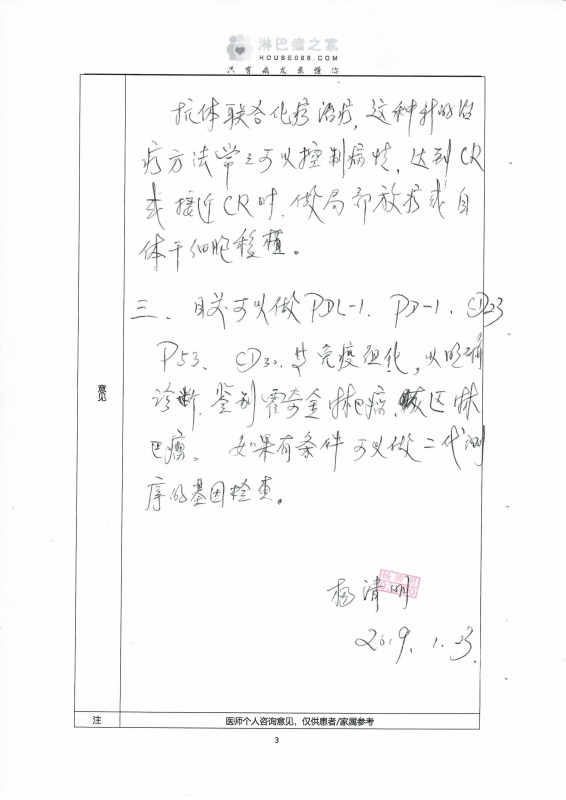 淋巴瘤之家
HOUSE086.COM
只有病友最懂你
抗体联合化疗治疗,这种科的治
疗方法常常可以控制病情,达到CR
或接近CR时,做局部放疗或自
体干细胞移植。
三、目前可以做PDL-1. PD-1. CD23
P53. CD30.等免疫组化,以明确
诊断.鉴别霍奇金淋巴瘤.灰区淋
巴瘤。如果有条件可以做二代测
序的基因检查。
意见
杨清明
2019.1.23.
注 医师个人咨询意见,仅供患者/家属参考
3